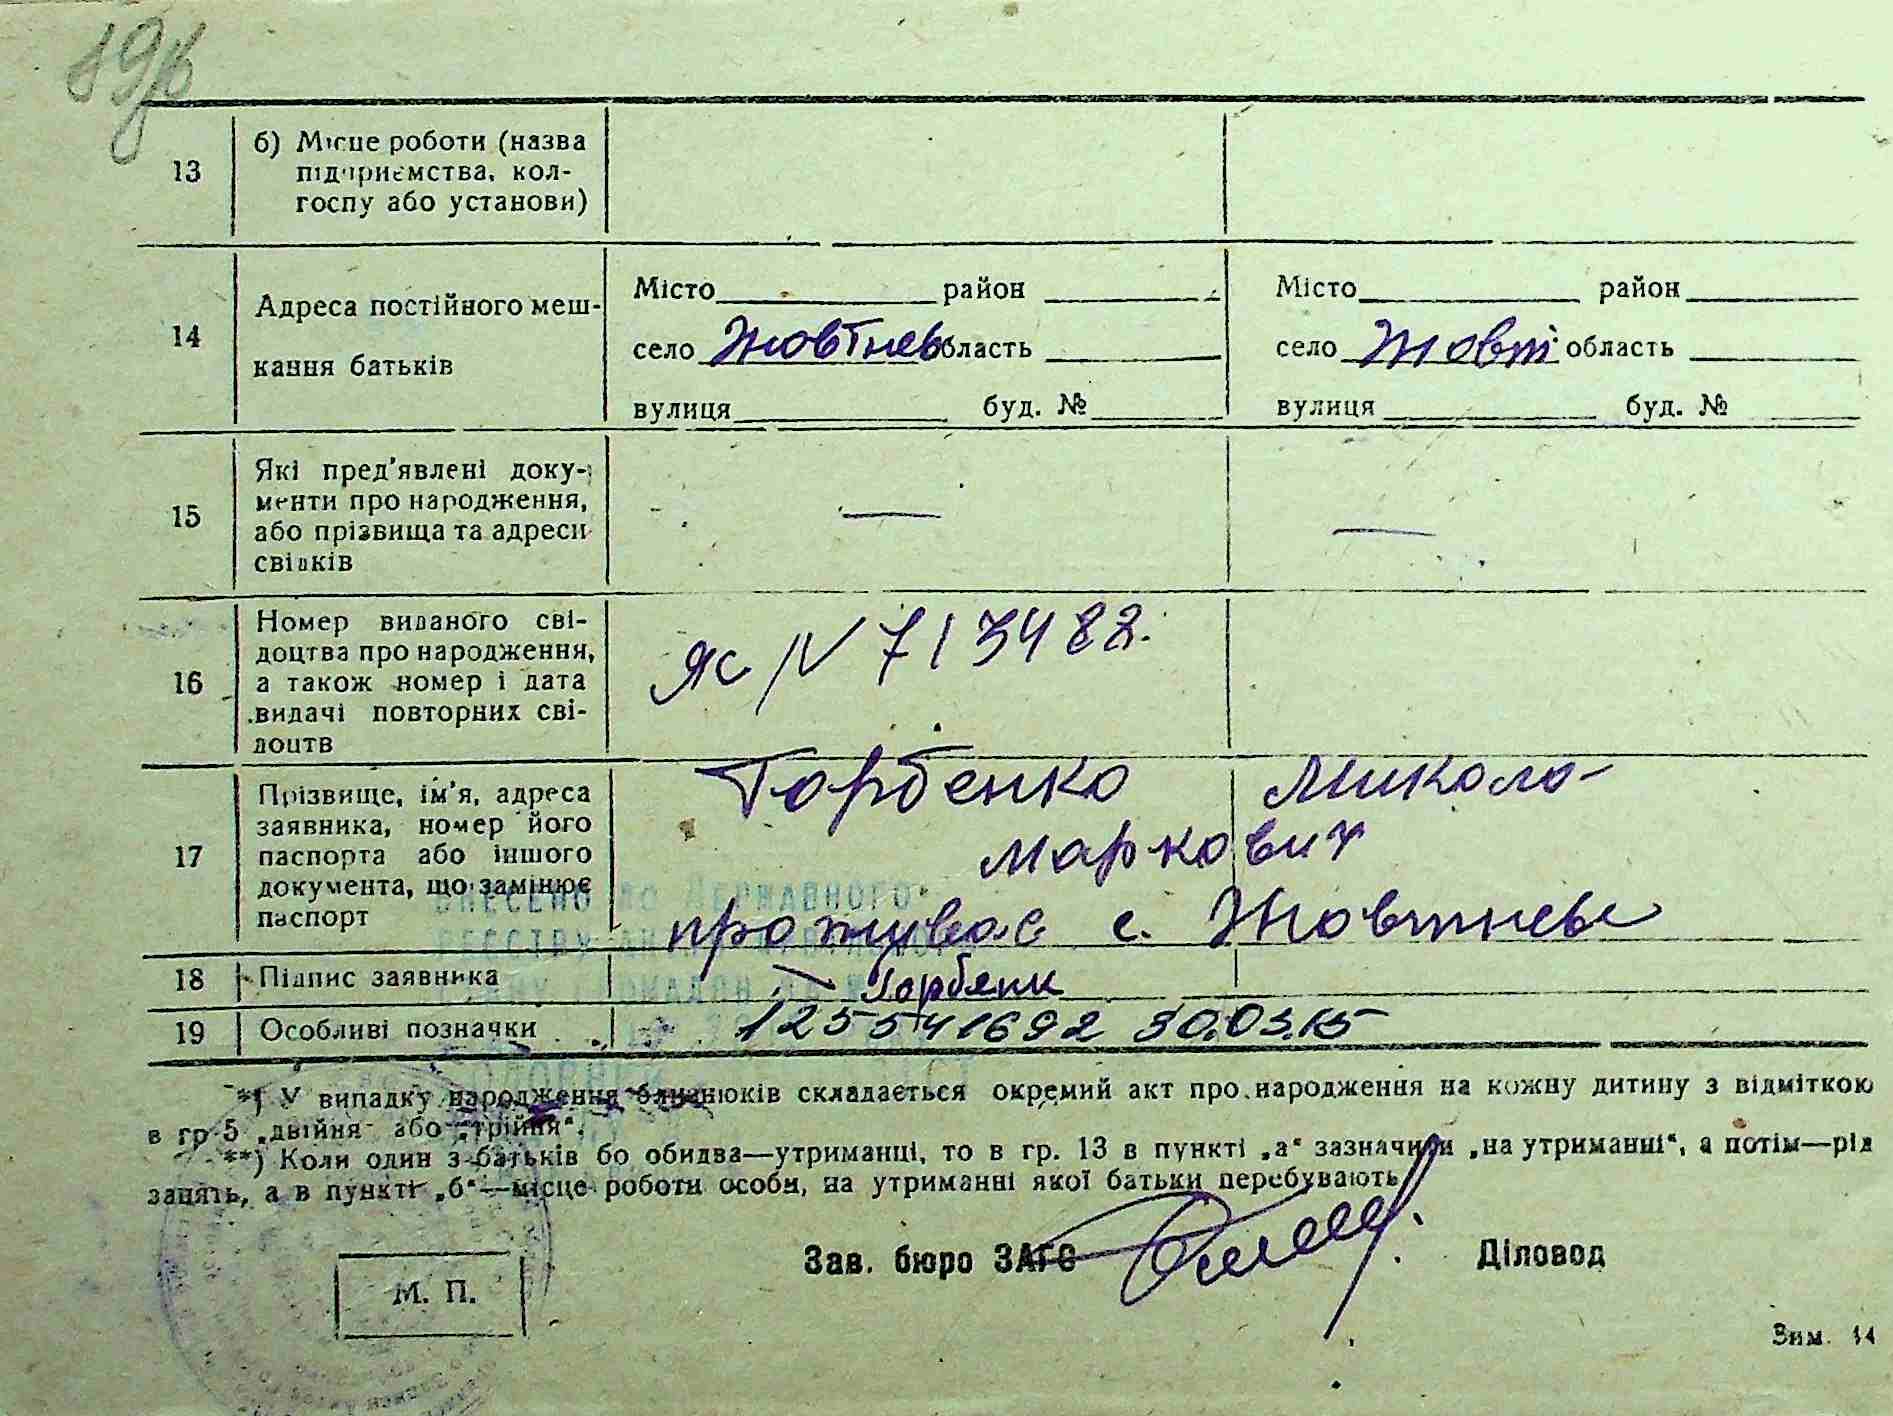 13
б) Місце роботи (назва
підприємства, кол-
госпу або установи)
14
Адреса постійного меш-
кання батьків
Місто район
село Жовтнев область
вулиця буд. №
Місто район
село Жовт область
вулиця буд. №
15
Які пред'явлені доку-
менти про народження,
або прізвища та адреси
свідків
—
—
16
Номер виданого сві-
доцтва про народження,
а також номер і дата
видачі повторних сві-
доцтв
ЯС N 713482.
17
Прізвище, ім'я, адреса
заявника, номер його
паспорта або іншого
документа, що замінює
паспорт
Горбенко Микола
Маркович
проживає с. Жовтневе
ВНЕСЕНО ДО ДЕРЖАВНОГО
РЕЄСТРУ
18
Підпис заявника
19
Особливі позначки
125541692 30.03.15
*) У випадку народження близнюків складається окремий акт про народження на кожну дитину з відміткою
в гр 5 „двійня" або „трійня".
**) Коли один з батьків бо обидва—утриманці, то в гр. 13 в пункті „а" зазначити „на утриманні", а потім—рід
занять, а в пункті „б"—місце роботи особи, на утриманні якої батьки перебувають
Зав. бюро ЗАГС
Діловод
М. П.
Зам. 14